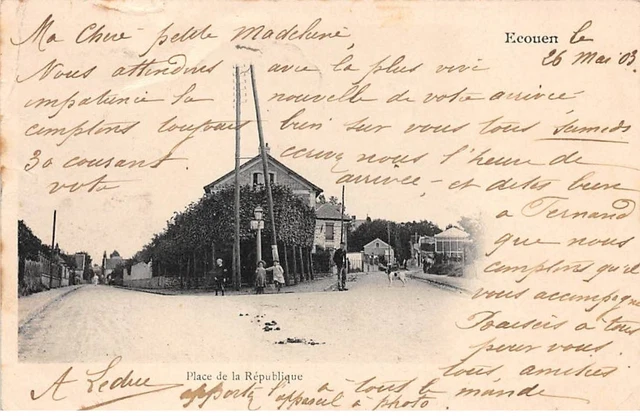 Ma Chère petite Madeleine,
Ecouen le
26 Mai 03
Nous attendons avec la plus vive
impatience la nouvelle de votre arrivée
comptons toujours bien sur vous tous Samedi
30 courant écrivez nous l'heure de
votre arrivée, et dites bien
a Fernand
que nous
comptons qu'il
vous accompagne
à tous
pour vous
tous amitiés
Place de la République
A Leduc
apportez l'appareil à photo
à tous le monde